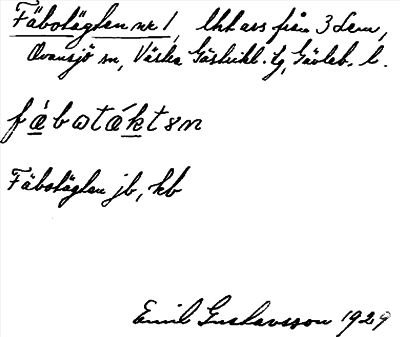 Fäbotäglen nr 1, lht ars från 3 Lem,
Ovansjö sn, Västra Gästrikl. tg, Gävleb. l.
fábωtáktən
Fäbotäglen jb, kb
Emil Gustavsson 1929